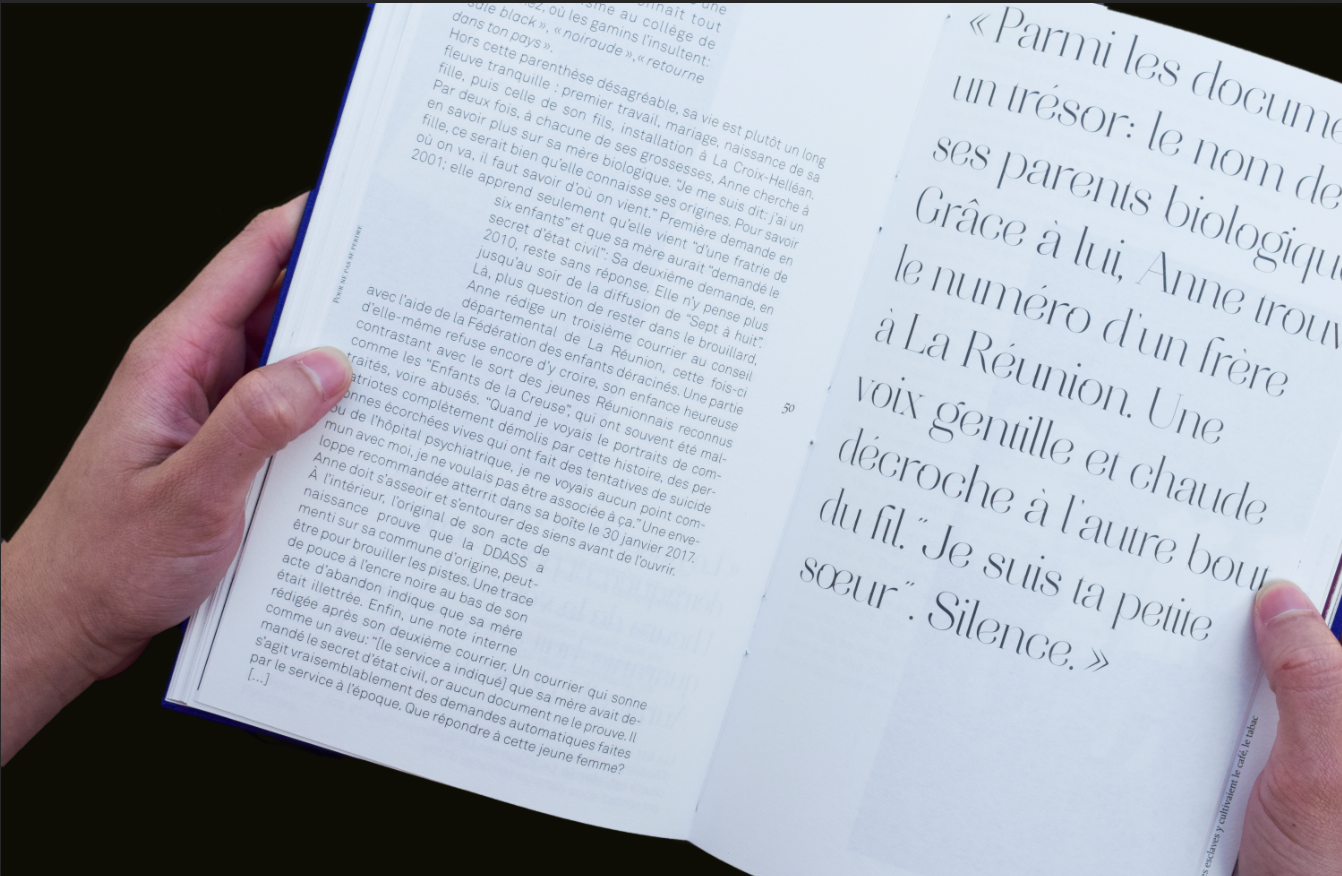 une
nnaît tout
sme au collège de
où les gamins l'insultent:
black », « noiraude », « retourne
dans ton pays ».
Hors cette parenthèse désagréable, sa vie est plutôt un long
fleuve tranquille : premier travail, mariage, naissance de sa
fille, puis celle de son fils, installation à La Croix-Helléan.
Par deux fois, à chacune de ses grossesses, Anne cherche à
en savoir plus sur sa mère biologique. "Je me suis dit: j'ai un
fille, ce serait bien qu'elle connaisse ses origines. Pour savoir
où on va, il faut savoir d'où on vient." Première demande en
2001: elle apprend seulement qu'elle vient "d'une fratrie de
six enfants" et que sa mère aurait "demandé le
secret d'état civil": Sa deuxième demande, en
2010, reste sans réponse. Elle n'y pense plus
jusqu'au soir de la diffusion de "Sept à huit".
Là, plus question de rester dans le brouillard,
Anne rédige un troisième courrier au conseil
départemental de La Réunion, cette fois-ci
avec l'aide de la Fédération des enfants déracinés. Une partie
d'elle-même refuse encore d'y croire, son enfance heureuse
contrastant avec le sort des jeunes Réunionnais reconnus
comme les "Enfants de la Creuse", qui ont souvent été mal-
traités, voire abusés. "Quand je voyais le portraits de com-
atriotes complètement démolis par cette histoire, des per-
onnes écorchées vives qui ont fait des tentatives de suicide
ou de l'hôpital psychiatrique, je ne voyais aucun point com-
mun avec moi, je ne voulais pas être associée à ça." Une enve-
loppe recommandée atterrit dans sa boîte le 30 janvier 2017.
Anne doit s'asseoir et s'entourer des siens avant de l'ouvrir.
À l'intérieur, l'original de son acte de
naissance prouve que la DDASS a
menti sur sa commune d'origine, peut-
être pour brouiller les pistes. Une trace
de pouce à l'encre noire au bas de son
acte d'abandon indique que sa mère
était illettrée. Enfin, une note interne
rédigée après son deuxième courrier. Un courrier qui sonne
comme un aveu: "[le service a indiqué] que sa mère avait de-
mandé le secret d'état civil, or aucun document ne le prouve. Il
s'agit vraisemblablement des demandes automatiques faites
par le service à l'époque. Que répondre à cette jeune femme?
[...]
Pour ne pas se perdre
50
« Parmi les docume
un trésor: le nom de
ses parents biologiqu
Grâce à lui, Anne trouv
le numéro d'un frère
à La Réunion. Une
voix gentille et chaude
décroche à l'autre bout
du fil. "Je suis ta petite
sœur". Silence. »
es esclaves y cultivaient le café, le tabac